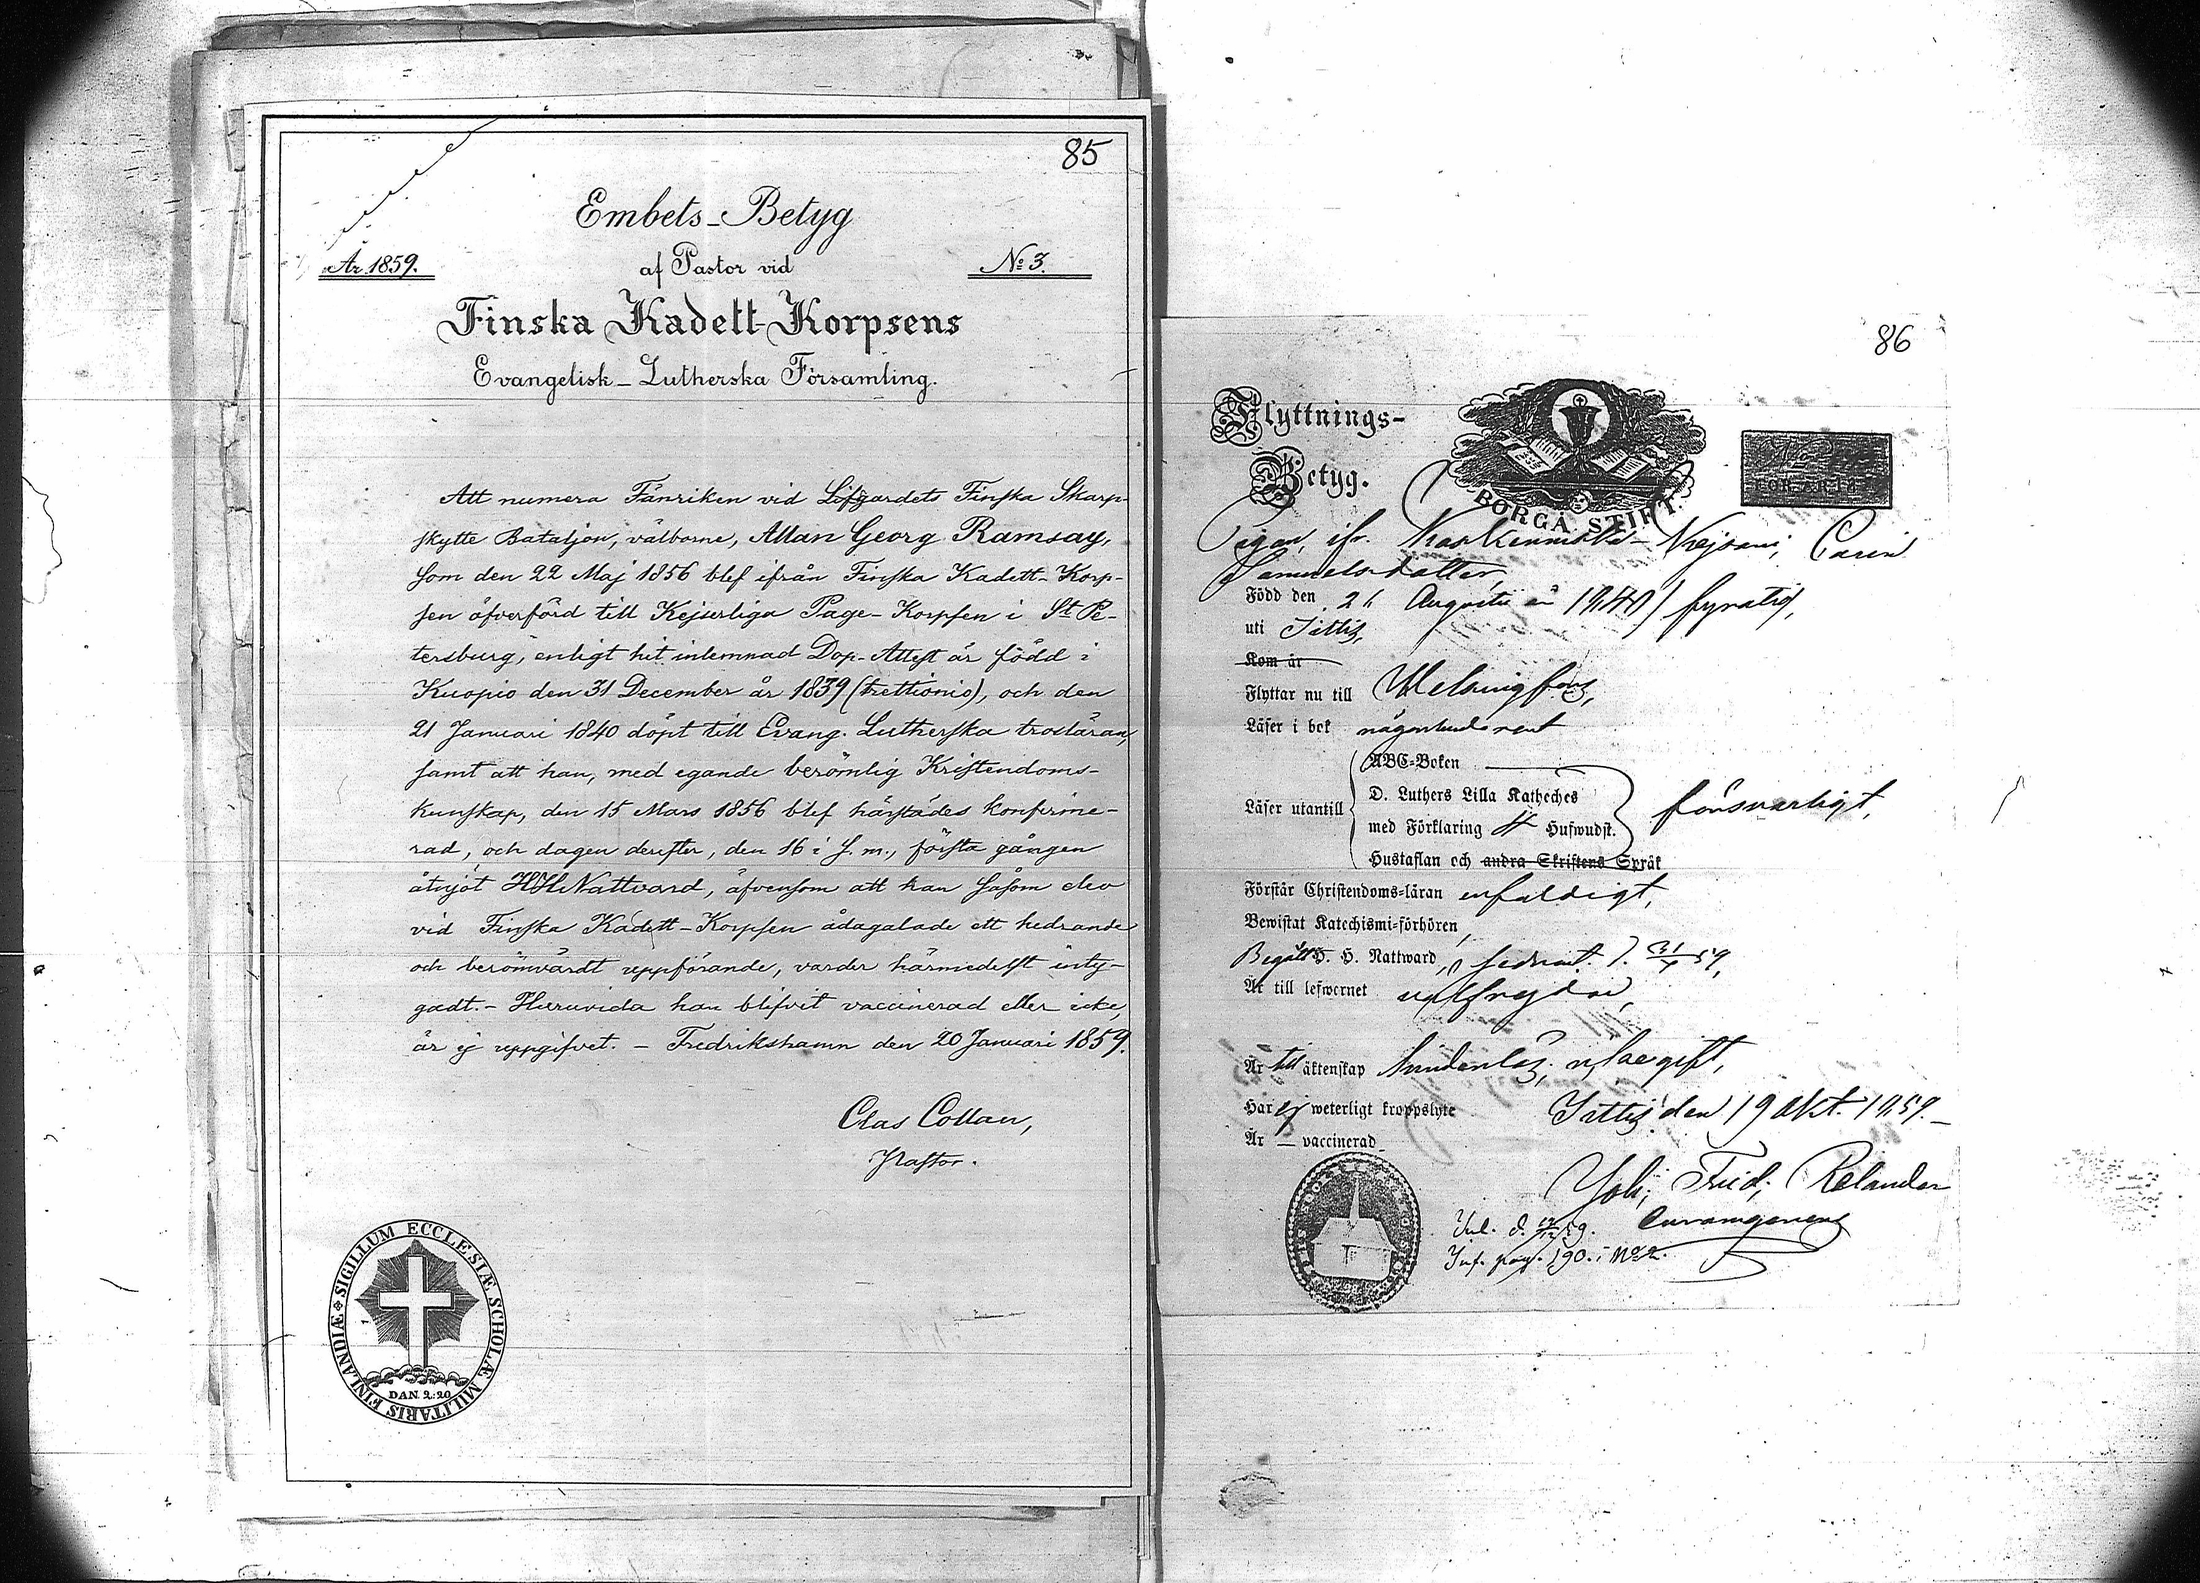 85
Embets-Betyg
År 1859.
af Pastor vid
No 3.
Finska Kadett-Korpsens
Evangelisk-Lutherska Församling.
Att numera Fänriken vid Lifgardets Finska Skarp-
skytte Bataljon, välborne, Allan Georg Ramsay,
som den 22 Maj 1856 blef ifrån Finska Kadett-Korp-
sen öfverförd till Kejserliga Page-Korpsen i St Pe-
tersburg, enligt hit inlemnad Dop-Attest är född i
Kuopio den 31 December år 1839 (trettionio), och den
21 Januari 1840 döpt till Evang. Lutherska trosläran,
samt att han, med egande berömlig Kristendoms-
kunskap, den 15 Mars 1856 blef härstädes konfirme-
rad, och dagen derefter, den 16 i s. m., första gången
åtnjöt H H Nattvard, äfvensom att han såsom elev
vid Finska Kadett-Korpsen ådagalade ett hedrande
och berömvärdt uppförande, varder härmedelst inty-
gadt. - Huruvida han blifvit vaccinerad eller icke,
är ej uppgifvet. - Fredrikshamn den 20 Januari 1859.
Clas Collan,
Pastor.
SIGILLUM ECCLESIÆ SCHOLÆ MILITARIS FINLANDIÆ
DAN. 2:20
86
Flyttnings-
Betyg.
BORGÅ STIFT.
Pigan, ifr. Carin
Samuelsdotter,
Född den 26 Augusti år 1840) fyratio,
uti Iittis,
Kom år
Flyttar nu till Helsingfors,
Läser i bok någorlunda rent
ABC-Boken
Läser utantill
D. Luthers Lilla Katheches
med Förklaring Hufwudst.
försvarligt,
Hustaflan och andra Skriftens Språk
Förstår Christendoms-läran enfaldigt,
Bewistat Katechismi-förhören,
Begått H. H. Nattward, sednast d. 59,
Är till lefwernet välfrejdad
Är till äktenskap hinderlös,
Har ej weterligt kroppslyte
Iittis den 19 Okt. 1859.
Är — vaccinerad
Joh. Fred. Relander
Inf. pag. 190. No 2.